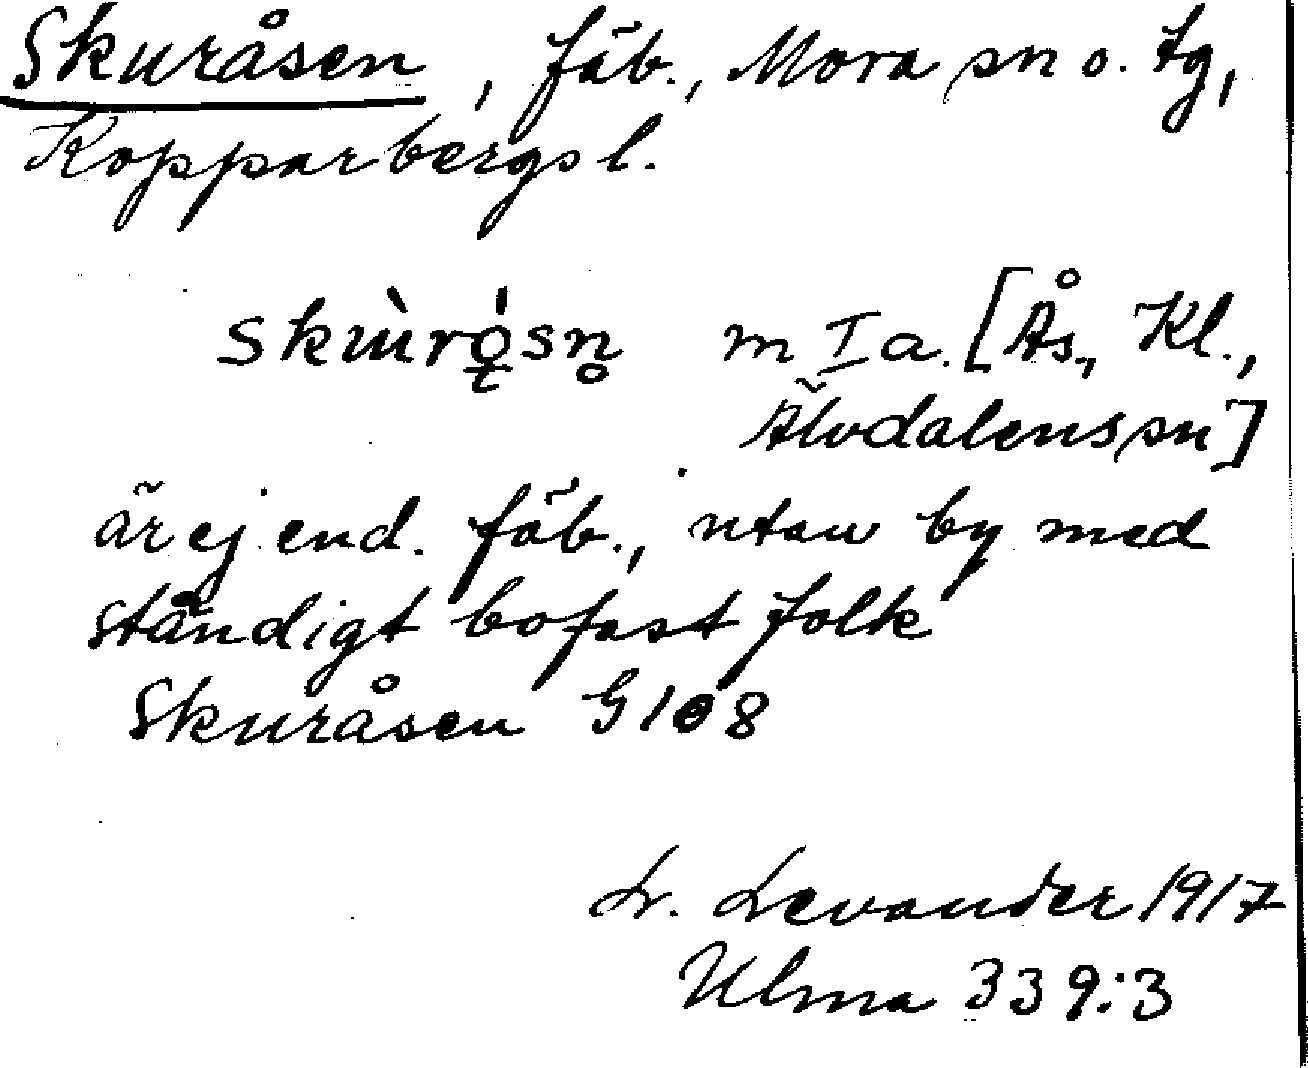 Skuråsen, fäb., Mora sn o. tg,
Kopparbergs l.
m I a. [Ås, Kl.,
Älvdalens sn]
är ej end. fäb., utan by med
ständigt bofast folk
Skuråsen G108
L. Levander 1917
Ulma 339:3